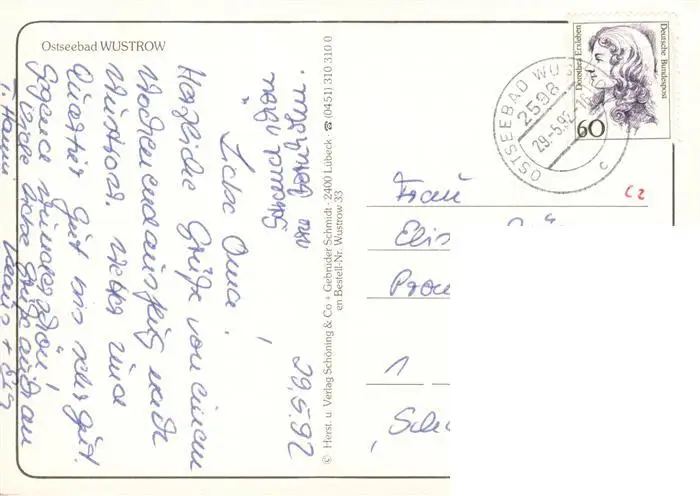 Ostseebad WUSTROW
29.5.92
Liebe Oma!
Herzliche Grüße von einem
Wochenendausflug nach
Wustrow. Wetter und
Quartier gut bis sehr gut.
Gegend wunderschön!
Liebe Grüße auch an
T. Hanna
Klaus +
© Herst. u. Verlag Schöning & Co + Gebrüder Schmidt · 2400 Lübeck · ☎ (0451) 310 310 0
en Bestell-Nr. Wustrow 33
OSTSEEBAD WUS
2598
29.-5.92
c
Dorothea Erxleben
Deutsche Bundespost
60
Frau
Elis
1